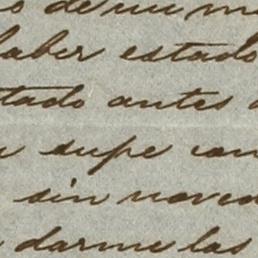 de mi m
haber estado
tado antes
supe con
sin noved
darme las